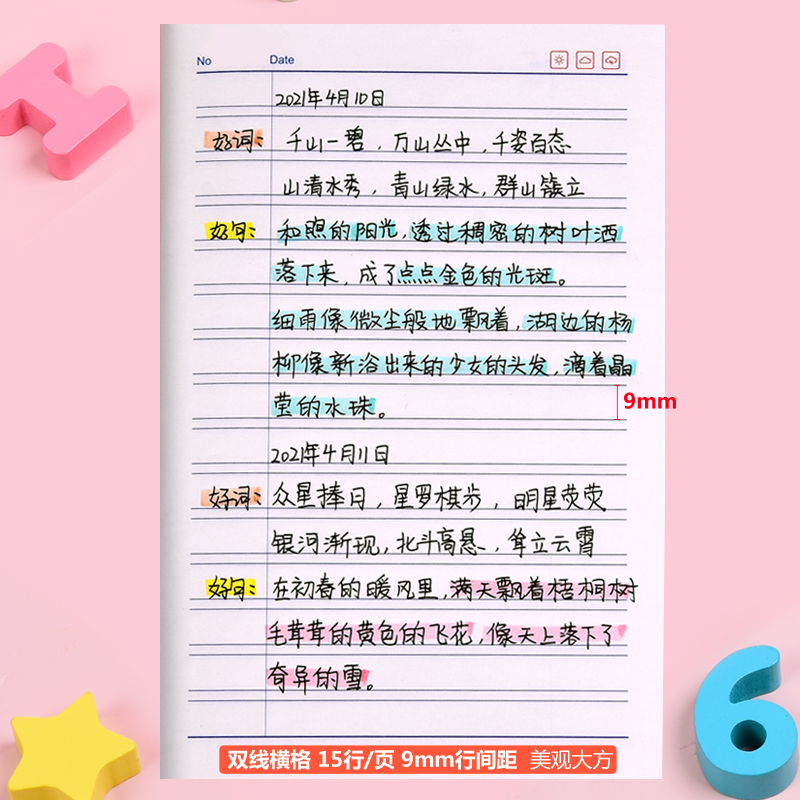 No Date
2021年4月10日
好词: 千山一碧，万山丛中，千姿百态
山清水秀，青山绿水，群山簇立
好句: 和煦的阳光，透过稠密的树叶洒
落下来，成了点点金色的光斑。
细雨像微尘般地飘着，湖边的杨
柳像新浴出来的少女的头发，滴着晶
莹的水珠。
9mm
2021年4月11日
好词: 众星捧日，星罗棋步，明星荧荧
银河渐现，北斗高悬，耸立云霄
好句: 在初春的暖风里，满天飘着梧桐树
毛茸茸的黄色的飞花，像天上落下了
奇异的雪。
双线横格 15行/页 9mm行间距 美观大方